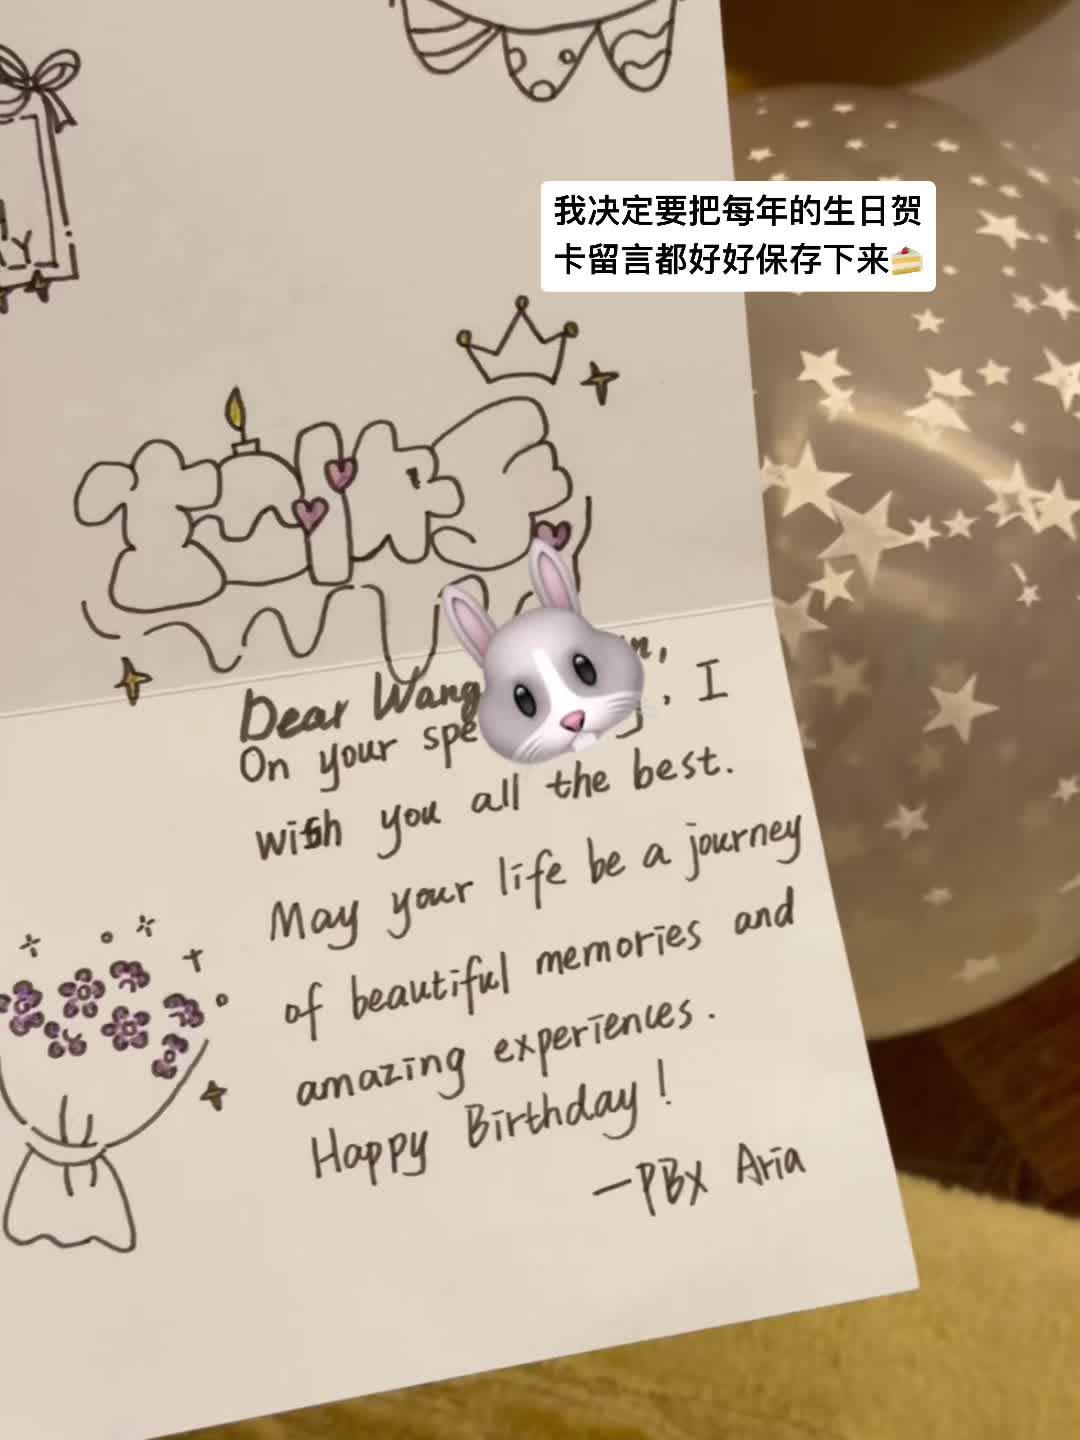 我决定要把每年的生日贺
卡留言都好好保存下来🍰
Dear Wang
On your I
wish you all the best.
May your life be a journey
of beautiful memories and
amazing experiences.
Happy Birthday!
—PBX Aria